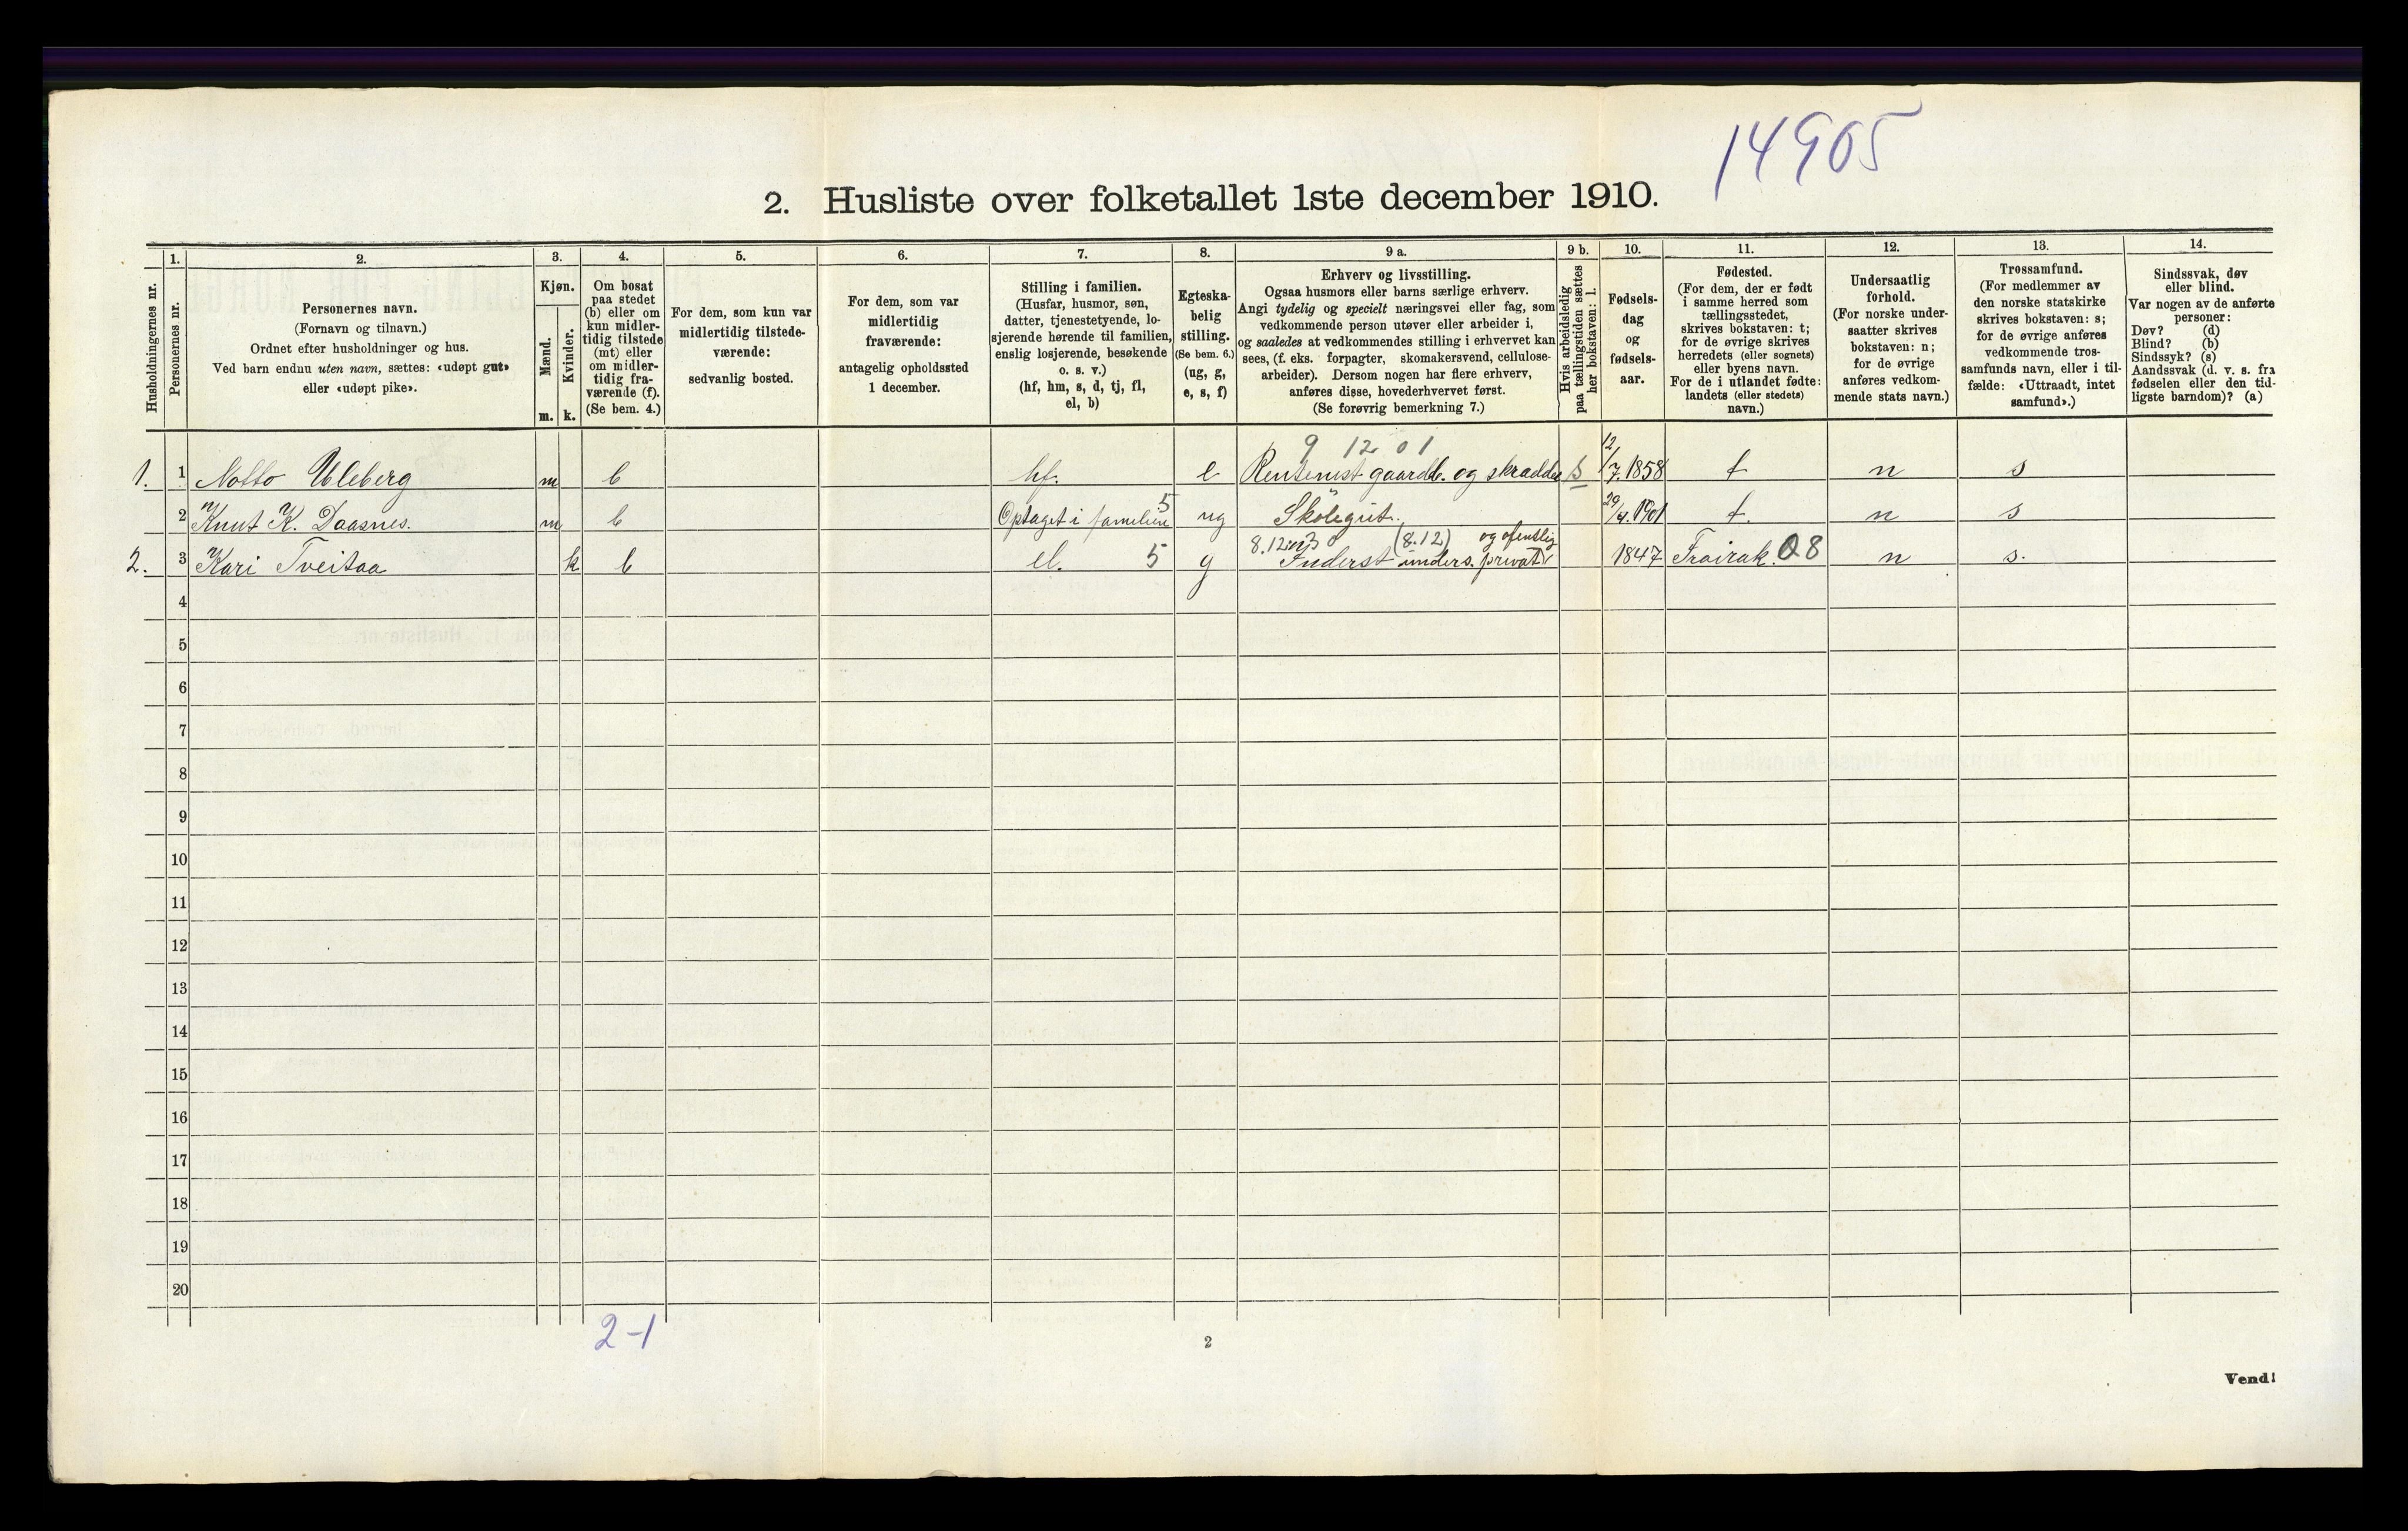 14905
2. Husliste over folketallet 1ste december 1910.
Husholdningernes nr.
1.
Personernes nr.
2.
Personernes navn.
(Fornavn og tilnavn.)
Ordnet efter husholdninger og hus.
Ved barn endnu uten navn, sættes: «udøpt gut»
eller «udøpt pike».
3.
Kjøn.
Mænd.
m.
Kvinder.
k.
4.
Om bosat
paa stedet
(b) eller om
kun midler-
tidig tilstede
(mt) eller
om midler-
tidig fra-
værende (f).
(Se bem. 4.)
5.
For dem, som kun var
midlertidig tilstede-
værende:
sedvanlig bosted.
6.
For dem, som var
midlertidig
fraværende:
antagelig opholdssted
1 december.
7.
Stilling i familien.
(Husfar, husmor, søn,
datter, tjenestetyende, lo-
sjerende hørende til familien,
enslig losjerende, besøkende
o. s. v.)
(hf, hm, s, d, tj, fl,
el, b)
8.
Egteska-
belig
stilling.
(Se bem. 6.)
(ug, g,
e, s, f)
9 a.
Erhverv og livsstilling.
Ogsaa husmors eller barns særlige erhverv.
Angi tydelig og specielt næringsvei eller fag, som
vedkommende person utøver eller arbeider i,
og saaledes at vedkommendes stilling i erhvervet kan
sees, (f. eks. forpagter, skomakersvend, cellulose-
arbeider). Dersom nogen har flere erhverv,
anføres disse, hovederhvervet først.
(Se forøvrig bemerkning 7.)
9 b.
Hvis arbeidsledig
paa tællingstiden sættes
her bokstaven: l.
10.
Fødsels-
dag
og
fødsels-
aar.
11.
Fødested.
(For dem, der er født
i samme herred som
tællingsstedet,
skrives bokstaven: t;
for de øvrige skrives
herredets (eller sognets)
eller byens navn.
For de i utlandet fødte:
landets (eller stedets)
navn.)
12.
Undersaatlig
forhold.
(For norske under-
saatter skrives
bokstaven: n;
for de øvrige
anføres vedkom-
mende stats navn.)
13.
Trossamfund.
(For medlemmer av
den norske statskirke
skrives bokstaven: s;
for de øvrige anføres
vedkommende tros-
samfunds navn, eller i til-
fælde: «Uttraadt, intet
samfund».)
14.
Sindssvak, døv
eller blind.
Var nogen av de anførte
personer:
Døv? (d)
Blind? (b)
Sindssyk? (s)
Aandssvak (d. v. s. fra
fødselen eller den tid-
ligste barndom)? (a)
9 12 01
1. 1 Notto Uleberg m b hf. e Rentenist gaardbr. og skrædder s 12/7.1858 t n s
2 Knut K. Daasnes. m b Optaget i familien 5 ug Skolegut. 29/4.1901 t. n s
8.12 (8.12) og ofentlig
2. 3 Kari Tveitaa k b el. 5 g Inderst unders. privat 1847 Froirak. 08 n s.
4
5
6
7
8
9
10
11
12
13
14
15
16
17
18
19
20
2-1
2
Vend!